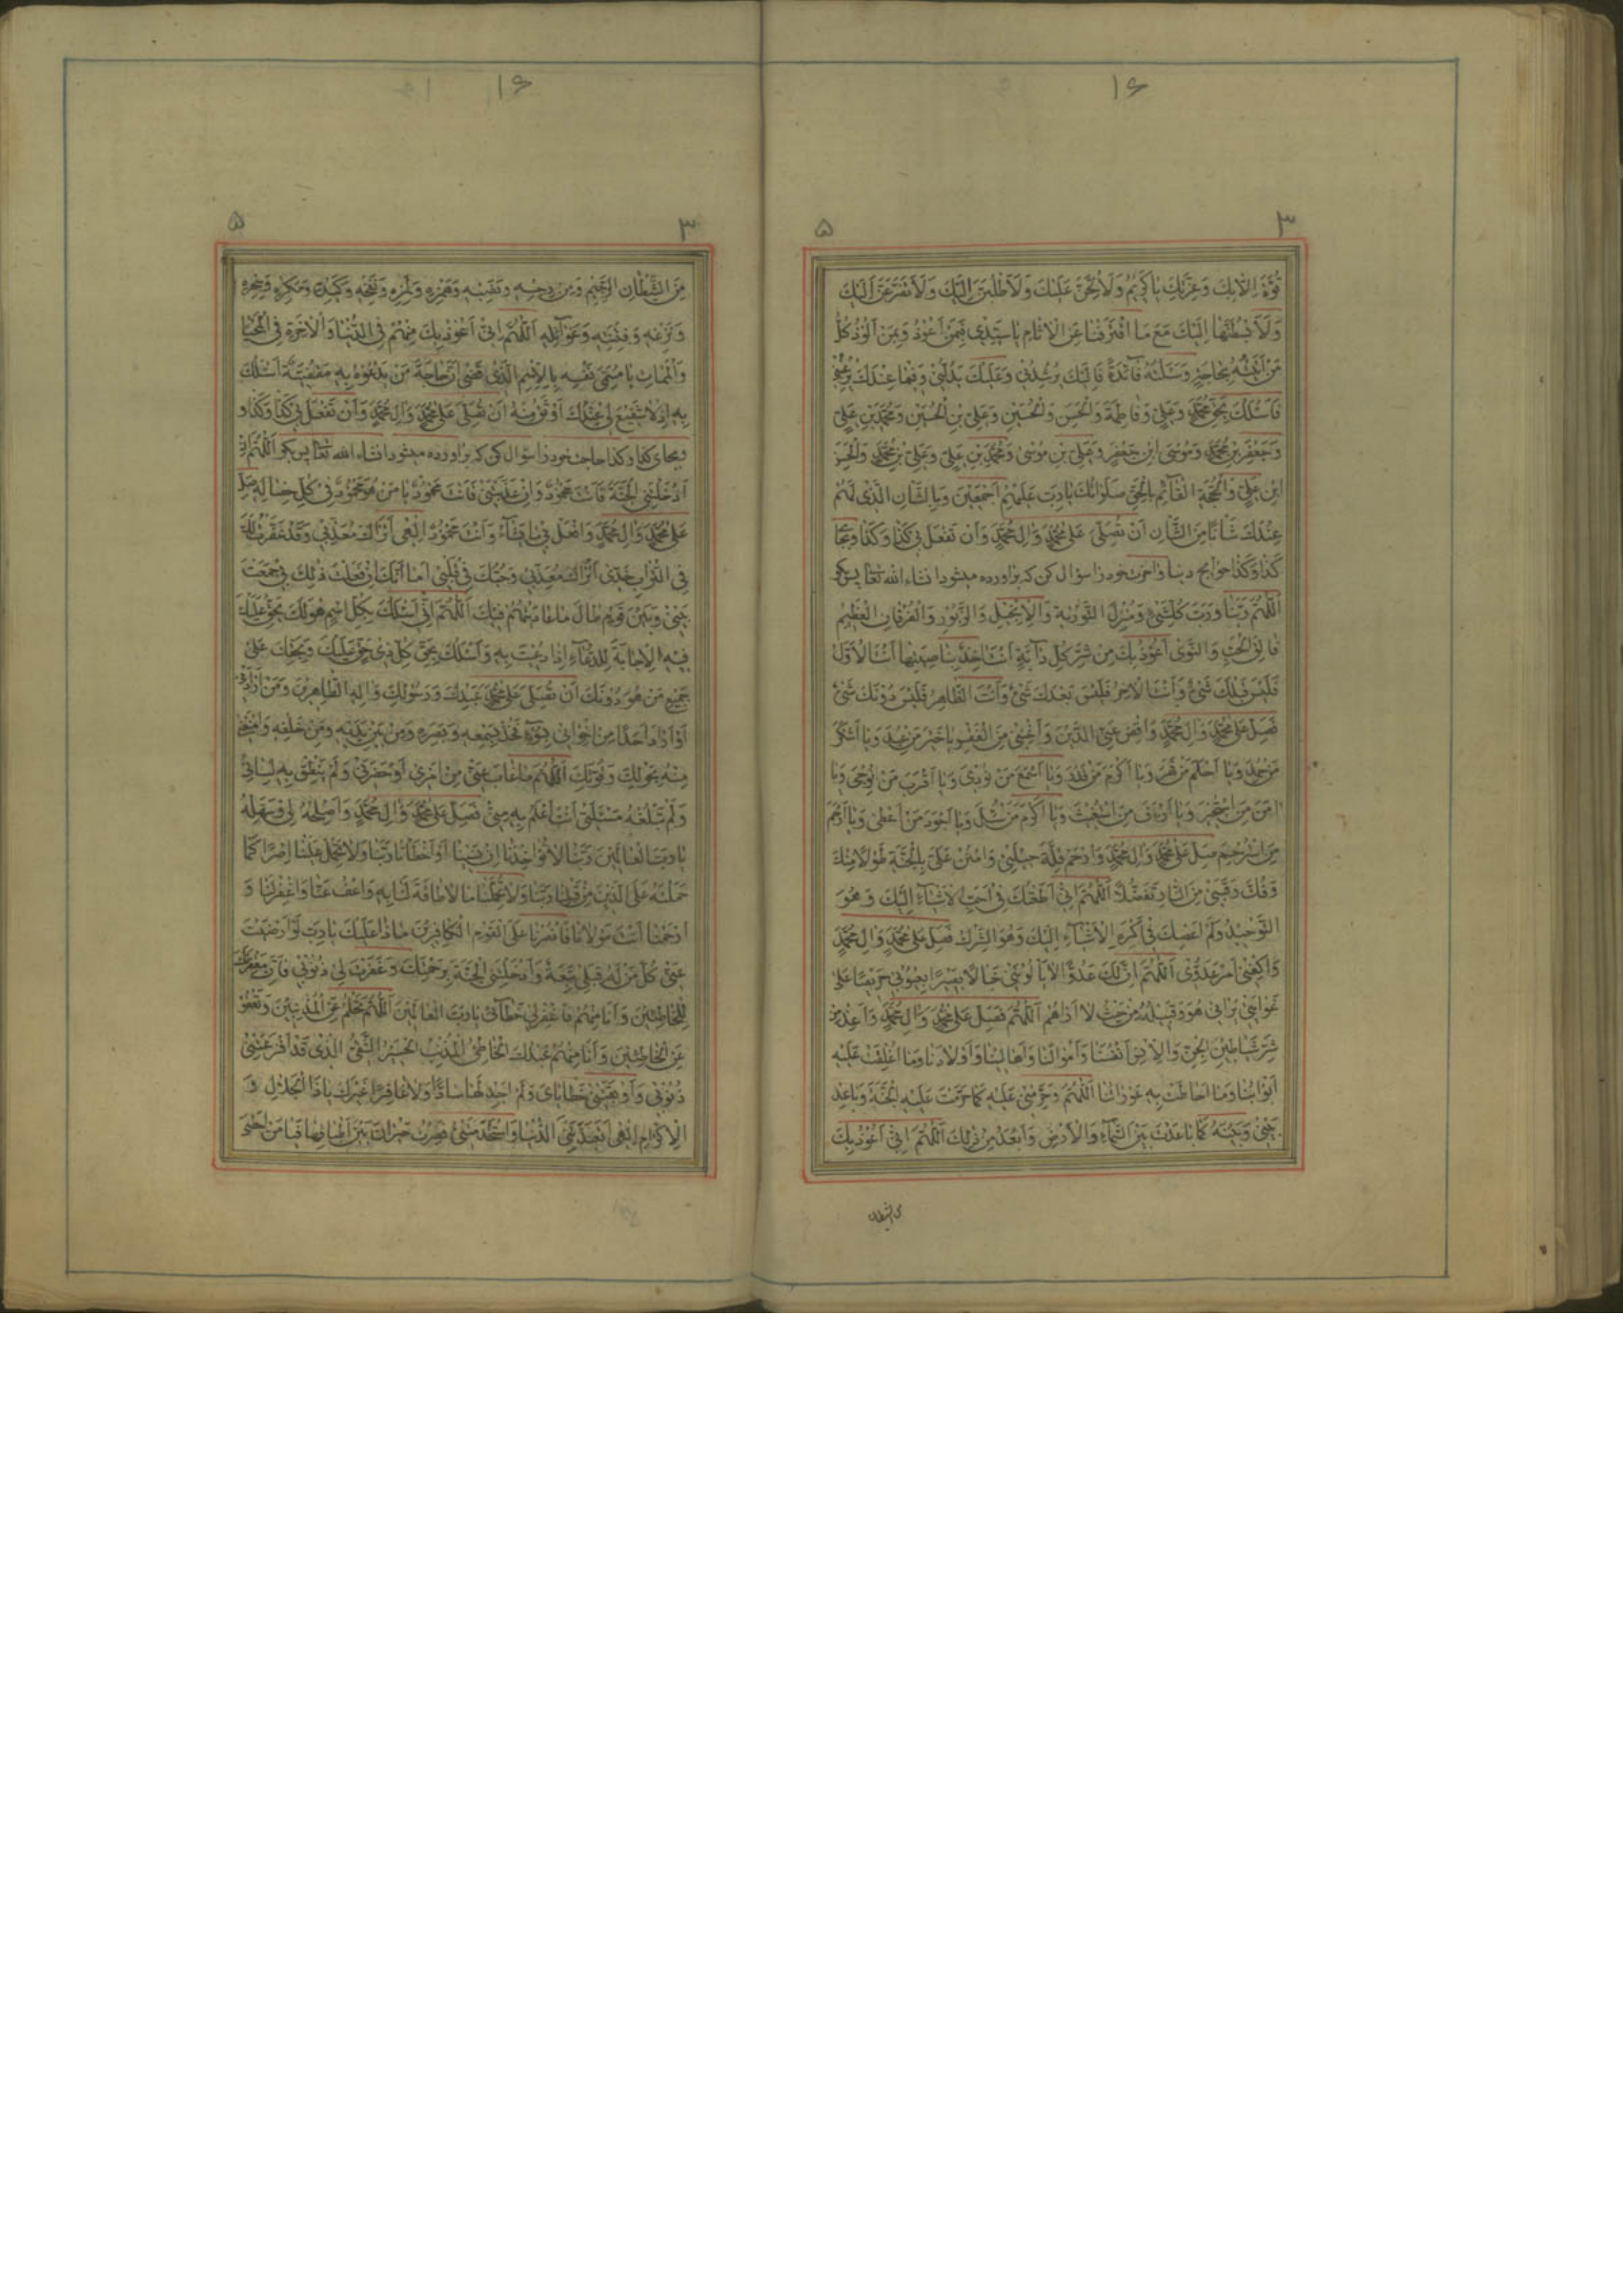 ۱۶
۳
۵
قُوَّةَ اِلّا بِكَ وَعِزَّتِكَ يا كَريمُ وَلَاُلِحَّنَّ عَلَيْكَ وَلَاَطْلُبَنَّ اِلَيْكَ وَلَاَتَضَرَّعَنَّ اِلَيْكَ
وَلَاَبْسُطَنَّها اِلَيْكَ مَعَ مَا اقْتَرَفْنا مِنَ الْاٰثامِ يا سَيِّدى فَبِمَنْ اَعُوذُ وَبِمَنْ اَلُوذُ كُلُّ
مَنْ اَتَيْتُهُ بِحاجَةٍ وَسَئَلْتُهُ فآئِدَةً فَاِلَيْكَ يُرْشِدُنى وَعَلَيْكَ يَدُلُّنى وَفيما عِنْدَكَ يُرَغِّبُنى
فَاَسْئَلُكَ بِحَقِّ مُحَمَّدٍ وَعَلِىٍّ وَفاطِمَةَ وَالْحَسَنِ وَالْحُسَيْنِ وَعَلِىِّ بْنِ الْحُسَيْنِ وَمُحَمَّدِ بْنِ عَلِىٍّ
وَجَعْفَرِ بْنِ مُحَمَّدٍ وَمُوسَى ابْنِ جَعْفَرٍ وَعَلِىِّ بْنِ مُوسى وَمُحَمَّدِ بْنِ عَلِىٍّ وَعَلِىِّ بْنِ مُحَمَّدٍ وَالْحَسَنِ
ابْنِ عَلِىٍّ وَالْحُجَّةِ الْقآئِمِ بِالْحَقِّ صَلَواتُكَ يا رَبِّ عَلَيْهِمْ اَجْمَعينَ وَبِالشَّانِ الَّذى لَهُمْ
عِنْدَكَ شَأْنًا مِنَ الشَّأْنِ اَنْ تُصَلِّىَ عَلى مُحَمَّدٍ وَالِ مُحَمَّدٍ وَاَنْ تَفْعَلَ بى كَذا وَكَذا وبجاى
كَذا وَكَذا حوايج دنيا و اخرت خود را سؤال كن كه براورده ميشود انشاء الله تعا پس بگو
اَللّٰهُمَّ رَبَّنا وَرَبَّ كُلِّ شَىْءٍ وَمُنْزِلَ التَّوْرٰيةِ وَالْاِنْجيلِ وَالزَّبُورِ وَالْفُرْقانِ الْعَظيمِ
فالِقَ الْحَبِّ وَالنَّوى اَعُوذُ بِكَ مِنْ شَرِّ كُلِّ دآبَّةٍ اَنْتَ اخِذٌ بِناصِيَتِها اَنْتَ الْاَوَّلُ
فَلَيْسَ قَبْلَكَ شَىْءٌ وَاَنْتَ الْاخِرُ فَلَيْسَ بَعْدَكَ شَىْءٌ وَاَنْتَ الظّاهِرُ فَلَيْسَ دُونَكَ شَىْءٌ
فَصَلِّ عَلى مُحَمَّدٍ وَالِ مُحَمَّدٍ وَاقْضِ عَنِّى الدَّيْنَ وَاَغْنِنى مِنَ الْفَقْرِ يا خَيْرَ مَنْ عُبِدَ وَيا اَشْكَرَ
مَنْ حُمِدَ وَيا اَحْلَمَ مَنْ قَهَرَ وَيا اَكْرَمَ مَنْ قَدَرَ وَيا اَسْمَعَ مَنْ نُودِىَ وَيا اَقْرَبَ مَنْ نُوجِىَ وَيا
امَنَ مَنِ اسْتُجيرَ وَيا اَرْئَفَ مَنِ اسْتُغيثَ وَيا اَكْرَمَ مَنْ سُئِلَ وَيا اَجْوَدَ مَنْ اَعْطى وَيا اَرْحَمَ
مَنِ اسْتُرْحِمَ صَلِّ عَلى مُحَمَّدٍ وَالِ مُحَمَّدٍ وَارْحَمْ قِلَّةَ حيلَتى وَامْنُنْ عَلَىَّ بِالْجَنَّةِ طَوْلًا مِنْكَ
وَفُكَّ رَقَبَتى مِنَ النّارِ تَفَضُّلًا اَللّٰهُمَّ اِنّى اَطَعْتُكَ فى اَحَبِّ الْاَشْيآءِ اِلَيْكَ وَهُوَ
التَّوْحيدُ وَلَمْ اَعْصِكَ فى اَكْرَهِ الْاَشْيآءِ اِلَيْكَ وَهُوَ الشِّرْكُ فَصَلِّ عَلى مُحَمَّدٍ وَالِ مُحَمَّدٍ
وَاكْفِنى اَمْرَ عَدُوّى اَللّٰهُمَّ اِنَّ لَكَ عَدُوًّا لا يَاْلُونى خَبالًا بَصيرًا بِعُيُوبى حَريصًا عَلى
غَوايَتى يَرانى هُوَ وَقَبيلُهُ مِنْ حَيْثُ لا اَراهُمْ اَللّٰهُمَّ فَصَلِّ عَلى مُحَمَّدٍ وَالِ مُحَمَّدٍ وَاَعِذْ مِنْ
شَرِّ شَياطينِ الْجِنِّ وَالْاِنْسِ اَنْفُسَنا وَاَمْوالَنا وَاَهالينا وَاَوْلادَنا وَما اُغْلِقَتْ عَلَيْهِ
اَبْوابُنا وَما اَحاطَتْ بِهِ عَوْراتُنا اَللّٰهُمَّ وَحَرِّمْنى عَلَيْهِ كَما حَرَّمْتَ عَلَيْهِ الْجَنَّةَ وَباعِدْ
بَيْنى وَبَيْنَهُ كَما باعَدْتَ بَيْنَ السَّمآءِ وَالْاَرْضِ وَاَبْعَدَ مِنْ ذٰلِكَ اَللّٰهُمَّ اِنّى اَعُوذُ بِكَ
من الشيطان
۱۶
۳
۵
مِنَ الشَّيْطانِ الرَّجيمِ وَمِنْ رِجْسِهِ وَنَصَبِهِ وَهَمْزِهِ وَلَمْزِهِ وَنَفْخِهِ وَكَيْدِهِ وَمَكْرِهِ وَسِحْرِهِ
وَنَزْغِهِ وَفِتْنَتِهِ وَغَوآئِلِهِ اَللّٰهُمَّ اِنّى اَعُوذُ بِكَ مِنْهُمْ فِى الدُّنْيا وَالْاخِرَةِ فِى الْمَحْيا
وَالْمَماتِ يا مُسَمِّىَ نَفْسِهِ بِالْاِسْمِ الَّذى قَضى اَنَّ حاجَةَ مَنْ يَدْعُوهُ بِهِ مَقْضِيَّةٌ اَسْئَلُكَ
بِهِ اِذْ لا شَفيعَ لى عِنْدَكَ اَوْثَقُ مِنْهُ اَنْ تُصَلِّىَ عَلى مُحَمَّدٍ وَالِ مُحَمَّدٍ وَاَنْ تَفْعَلَ بى كَذا وَكَذا و
وبجاى كذا وكذا حاجت خود را سؤال كن كه براورده ميشود انشاء الله تعا پس بگو اَللّٰهُمَّ اِنْ
اَدْخَلْتَنِى الْجَنَّةَ فَاَنْتَ مَحْمُودٌ وَاِنْ عَذَّبْتَنى فَاَنْتَ مَحْمُودٌ يا مَنْ هُوَ مَحْمُودٌ فى كُلِّ خِصالِهِ صَلِّ
عَلى مُحَمَّدٍ وَالِ مُحَمَّدٍ وَافْعَلْ بى ما تَشآءُ وَاَنْتَ مَحْمُودٌ اِلٰهى اَتُراكَ مُعَذِّبى وَقَدْ عَفَّرْتُ لَكَ
فِى التُّرابِ خَدّى اَتُراكَ مُعَذِّبى وَحُبُّكَ فى قَلْبى اَما اِنَّكَ اِنْ فَعَلْتَ ذٰلِكَ بى جَمَعْتَ
بَيْنى وَبَيْنَ قَوْمٍ طالَ ما عادَيْتُهُمْ فيكَ اَللّٰهُمَّ اِنّى اَسْئَلُكَ بِكُلِّ اسْمٍ هُوَ لَكَ يَحِقُّ عَلَيْكَ
فيهِ الْاِجابَةُ لِلدُّعآءِ اِذا دُعيتَ بِهِ وَاَسْئَلُكَ بِحَقِّ كُلِّ ذى حَقٍّ عَلَيْكَ وَبِحَقِّكَ عَلى
جَميعِ مَنْ هُوَ دُونَكَ اَنْ تُصَلِّىَ عَلى مُحَمَّدٍ عَبْدِكَ وَرَسُولِكَ وَالِهِ الطّاهِرينَ وَمَنْ اَرادَنى
اَوْ اَرادَ اَحَدًا مِنْ اِخْوانى بِسُوءٍ فَخُذْ بِسَمْعِهِ وَبَصَرِهِ وَمِنْ بَيْنِ يَدَيْهِ وَمِنْ خَلْفِهِ وَامْنَعْنى
مِنْهُ بِحَوْلِكَ وَقُوَّتِكَ اَللّٰهُمَّ ما غابَ عَنّى مِنْ اَمْرى اَوْ حَضَرَنى وَلَمْ يَنْطِقْ بِهِ لِسانى
وَلَمْ تَبْلُغْهُ مَسْئَلَتى اَنْتَ اَعْلَمُ بِهِ مِنّى فَصَلِّ عَلى مُحَمَّدٍ وَالِ مُحَمَّدٍ وَاَصْلِحْهُ لى وَسَهِّلْهُ
يا رَبَّ الْعالَمينَ رَبَّنا لا تُؤاخِذْنا اِنْ نَسينا اَوْ اَخْطَاْنا رَبَّنا وَلا تَحْمِلْ عَلَيْنا اِصْرًا كَما
حَمَلْتَهُ عَلَى الَّذينَ مِنْ قَبْلِنا رَبَّنا وَلا تُحَمِّلْنا ما لا طاقَةَ لَنا بِهِ وَاعْفُ عَنّا وَاغْفِرْ لَنا وَ
ارْحَمْنا اَنْتَ مَوْلانا فَانْصُرْنا عَلَى الْقَوْمِ الْكافِرينَ ماذا عَلَيْكَ يا رَبِّ لَوْ اَرْضَيْتَ
عَنّى كُلَّ مَنْ لَهُ قِبَلى تَبِعَةٌ وَاَدْخَلْتَنِى الْجَنَّةَ بِرَحْمَتِكَ وَغَفَرْتَ لى ذُنُوبى فَاِنَّ مَغْفِرَتَكَ
لِلْخاطِئينَ وَاَنَا مِنْهُمْ فَاغْفِرْ لى خَطآئى يا رَبَّ الْعالَمينَ اَللّٰهُمَّ تَحْلُمُ عَنِ الْمُذْنِبينَ وَتَعْفُو
عَنِ الْخاطِئينَ وَاَنَا مِنْهُمْ عَبْدُكَ الْخاطِئُ الْمُذْنِبُ الْحَسيرُ الشَّقِىُّ الَّذى قَدْ اَفْزَعَتْنى
ذُنُوبى وَاَوْبَقَتْنى خَطاياىَ وَلَمْ اَجِدْ لَها سادًّا وَلا غافِرًا غَيْرَكَ يا ذَا الْجَلالِ وَ
الْاِكْرامِ اِلٰهى اسْتَعْبَدَتْنِى الدُّنْيا وَاسْتَخْدَمَتْنى فَصِرْتُ حَيْرانَ بَيْنَ اَطْباقِها فَيا مَنْ اَحْصَى